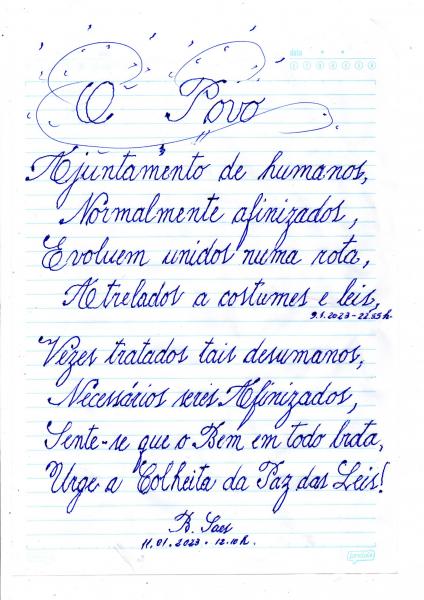 data
O Povo
Ajuntamento de humanos,
Normalmente afinizados,
Evoluem unidos numa rota,
Atrelados a costumes e leis,
9.1.2023-22:55h.
Vezes tratados tais desumanos,
Necessários seres Afinizados,
Sente-se que o Bem em todo brota,
Urge a Colheita da Paz das Leis!
B. Saes
11.01.2023-12:10h.